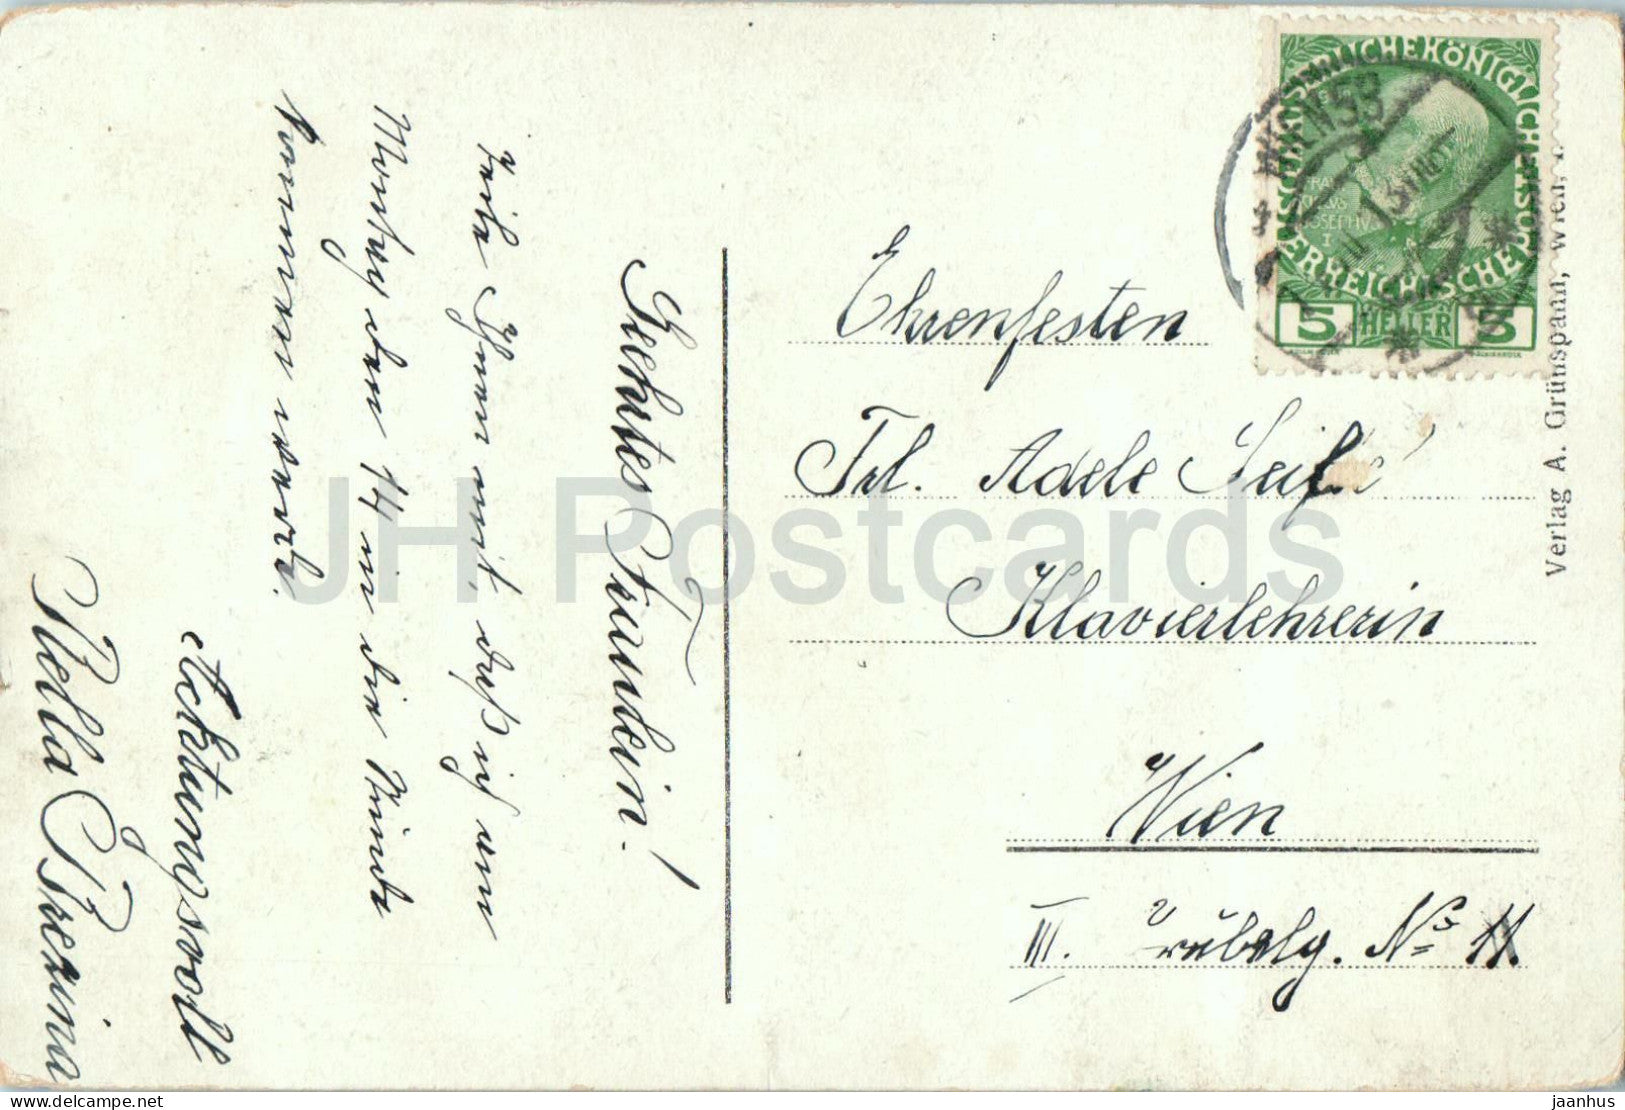 Geehrtes Fräulein!
Teile Ihnen mit, daß ich am
Montag den 14 in die Stunde
kommen werde.
Achtungsvoll
Stella
Ehrenfesten
Frl. Adele
Klavierlehrerin
Wien
III. No 11.
WIEN 53
KAISERLICHEKÖNIGLICHE
ÖSTERREICHISCHE
5 HELLER 5
Verlag A. Grünspann, Wien,
JH Postcards
delcampe.net
jaanhus